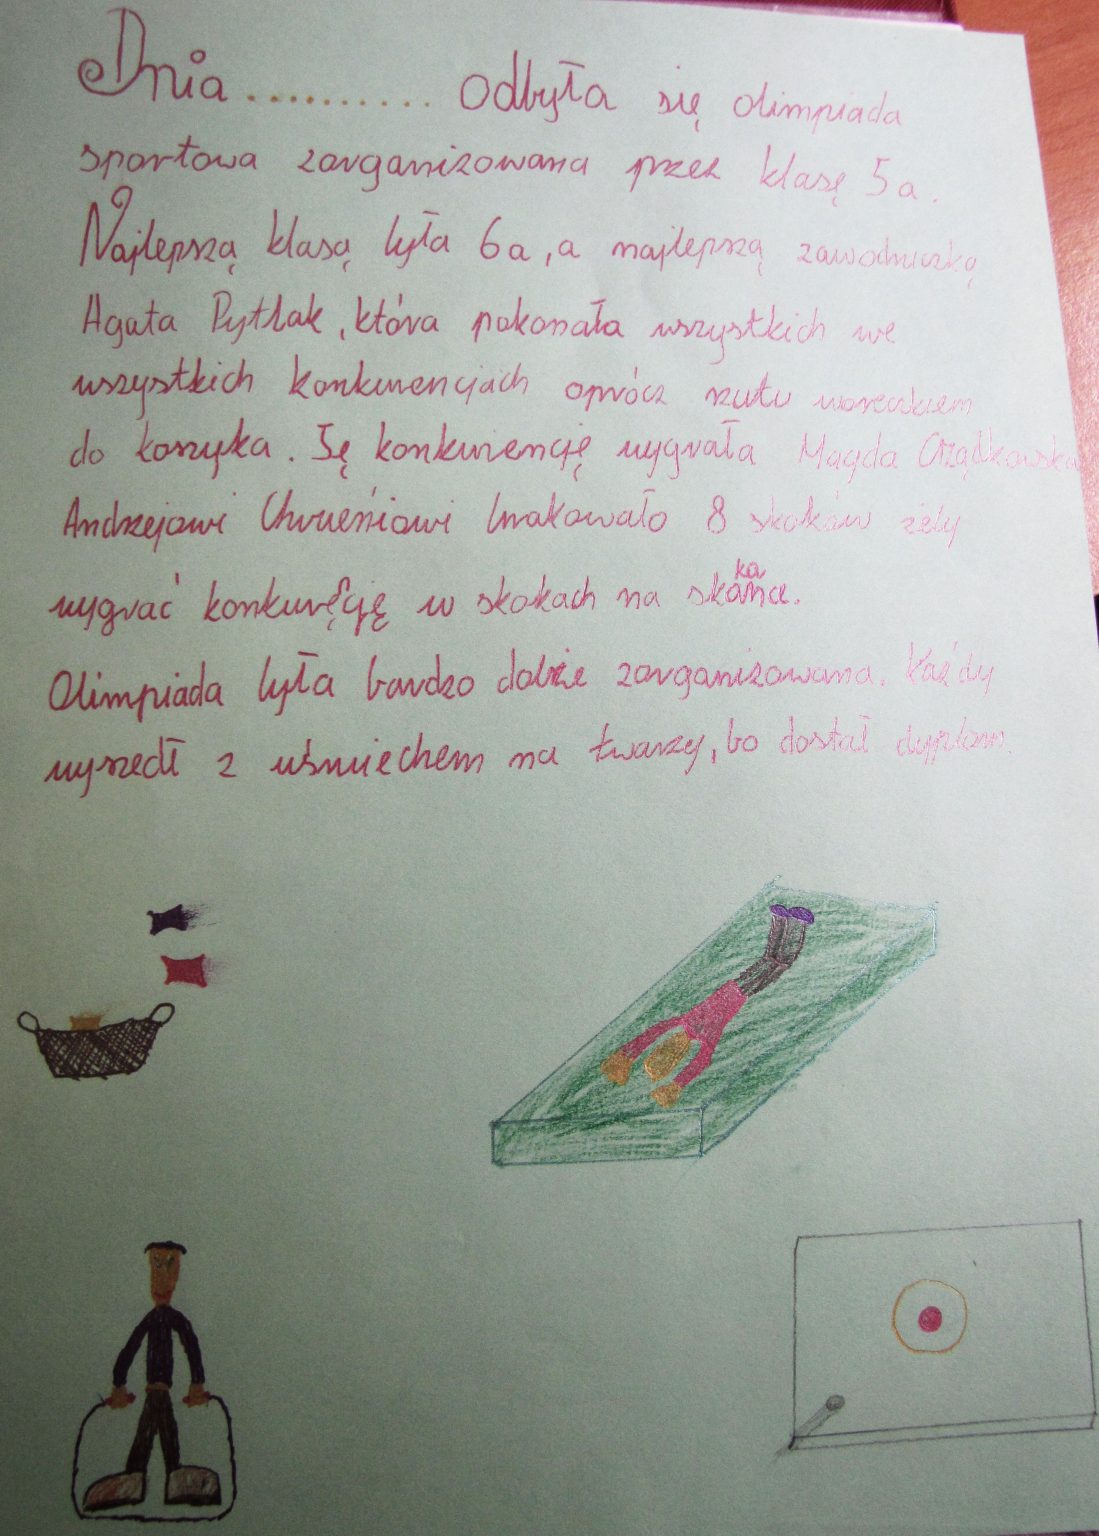 Dnia .......... odbyła się olimpiada
sportowa zorganizowana przez klasę 5a.
Najlepszą klasą była 6a, a najlepszą zawodniczką
Agata Pytlak, która pokonała wszystkich we
wszystkich konkurencjach oprócz rzutu woreczkiem
do koszyka. Tę konkurencję wygrała Magda
Andrzejowi brakowało 8 skoków żeby
wygrać konkuręcję w skokach na skakance.
Olimpiada była bardzo dobrze zorganizowana. Każdy
wyszedł z uśmiechem na twarzy, bo dostał dyplom